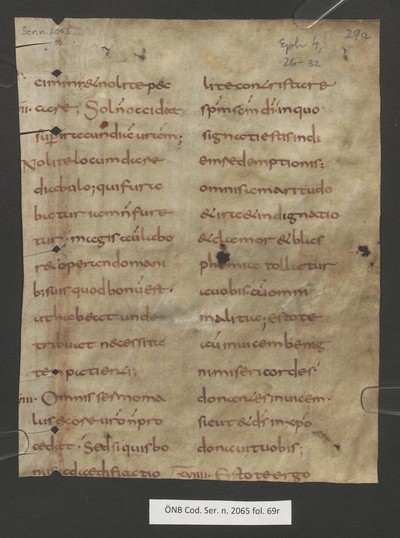 Ser. n. 2065
29a
Eph 4,
26-32
cimini; & nolite pec
care; Sol n̄ occidat
sup iracundiā urām;
Nolite locum dare
diabolo; qui fura
batur iam n̄ fure
tur; magis aū labo
r& operando mani
b; suis quod bonū est;
ut habeat unde
tribuat necessita
tem patienti;
Omnis sermo ma
lus ex ore urō n̄ pro
cedat; Sed si quis bo
nus ad aedificatio
lite contristare
spm̄ scm̄ dī in quo
signati estis in di
em redemptionis;
omnis amaritudo
& ira & indignatio
& clamor & blas
phemia tollatur
a uobis cū omni
malitia; estote
aū inuicem benig
ni misericordes;
donantes inuicem;
sicut & ds̄ in xp̄o
donauit uobis;
Estote ergo
ÖNB Cod. Ser. n. 2065 fol. 69r